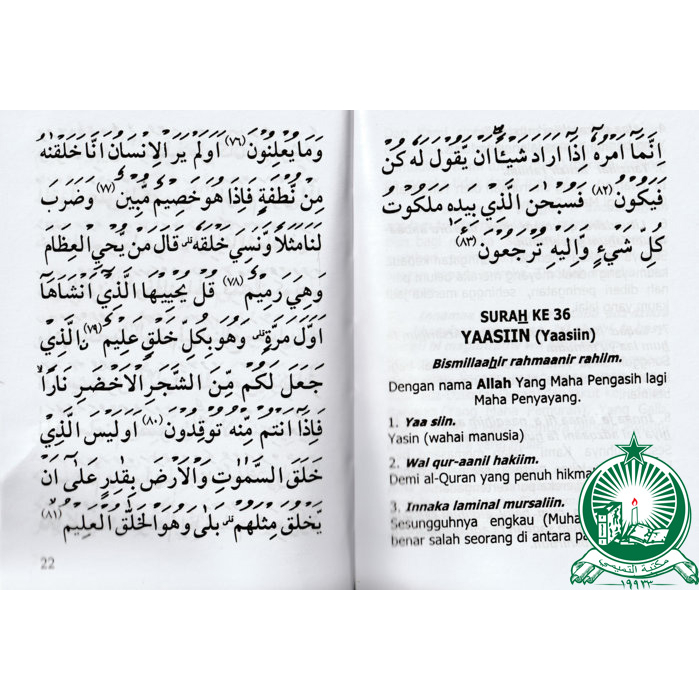 وَمَا يُعْلِنُوْنَ (٧٦) اَوَلَمْ يَرَ الْاِنْسَانُ اَنَّا خَلَقْنٰهُ
مِنْ نُّطْفَةٍ فَاِذَا هُوَ خَصِيْمٌ مُّبِيْنٌ (٧٧) وَضَرَبَ
لَنَا مَثَلًا وَّنَسِيَ خَلْقَهٗ ۗ قَالَ مَنْ يُّحْيِ الْعِظَامَ
وَهِيَ رَمِيْمٌ (٧٨) قُلْ يُحْيِيْهَا الَّذِيْٓ اَنْشَاَهَآ
اَوَّلَ مَرَّةٍ ۗ وَهُوَ بِكُلِّ خَلْقٍ عَلِيْمٌ (٧٩) ۨالَّذِيْ
جَعَلَ لَكُمْ مِّنَ الشَّجَرِ الْاَخْضَرِ نَارًا
فَاِذَآ اَنْتُمْ مِّنْهُ تُوْقِدُوْنَ (٨٠) اَوَلَيْسَ الَّذِيْ
خَلَقَ السَّمٰوٰتِ وَالْاَرْضَ بِقٰدِرٍ عَلٰٓى اَنْ
يَّخْلُقَ مِثْلَهُمْ ۗ بَلٰى وَهُوَ الْخَلّٰقُ الْعَلِيْمُ (٨١)
22
اِنَّمَآ اَمْرُهٗٓ اِذَآ اَرَادَ شَيْـًٔا اَنْ يَّقُوْلَ لَهٗ كُنْ
فَيَكُوْنُ (٨٢) فَسُبْحٰنَ الَّذِيْ بِيَدِهٖ مَلَكُوْتُ
كُلِّ شَيْءٍ وَّاِلَيْهِ تُرْجَعُوْنَ (٨٣)
SURAH KE 36
YAASIIN (Yaasiin)
Bismillaahir rahmaanir rahiim.
Dengan nama Allah Yang Maha Pengasih lagi
Maha Penyayang.
1. Yaa siin.
Yasin (wahai manusia)
2. Wal qur-aanil hakiim.
Demi al-Quran yang penuh hikmah
3. Innaka laminal mursaliin.
Sesungguhnya engkau (Muha
benar salah seorang di antara
مكتبة التميمي